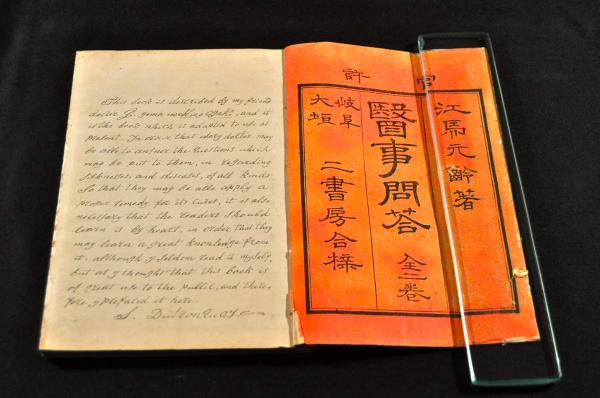 This book is described by my friend
doctor G. and it
is the book which is adapted to use at
present. In order that every doctor may
be able to answer the Questions which
may be put to them, in regarding
sickness, and diseases, of all kinds.
So that they may be able apply a
proper remedy for its cure, it is also
necessary that the readers should
learn is by heart, in order that they
may learn a great knowledge from
it. although y seldom read it myself,
but as y thought that this book is
of great use to the public, and there,
fore, y prefaced it here.
S.
官許
江馬元齡著
醫事問答 全二卷
岐阜
大垣
二書房合梓